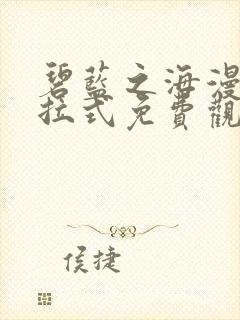 碧藍之海漫
拉式免費觀
侯捷